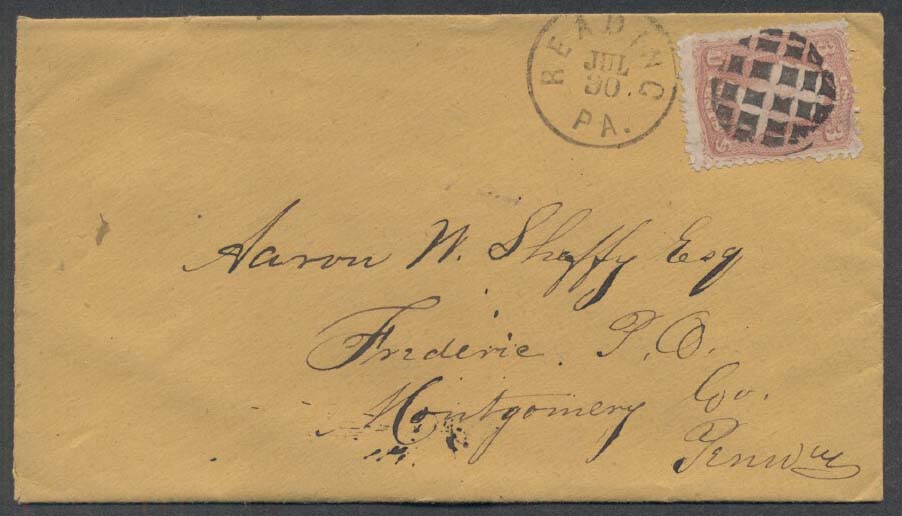 READING
JUL
30
PA.
Aaron W. Sheffy Esq
Frederic P.O.
Montgomery Co.